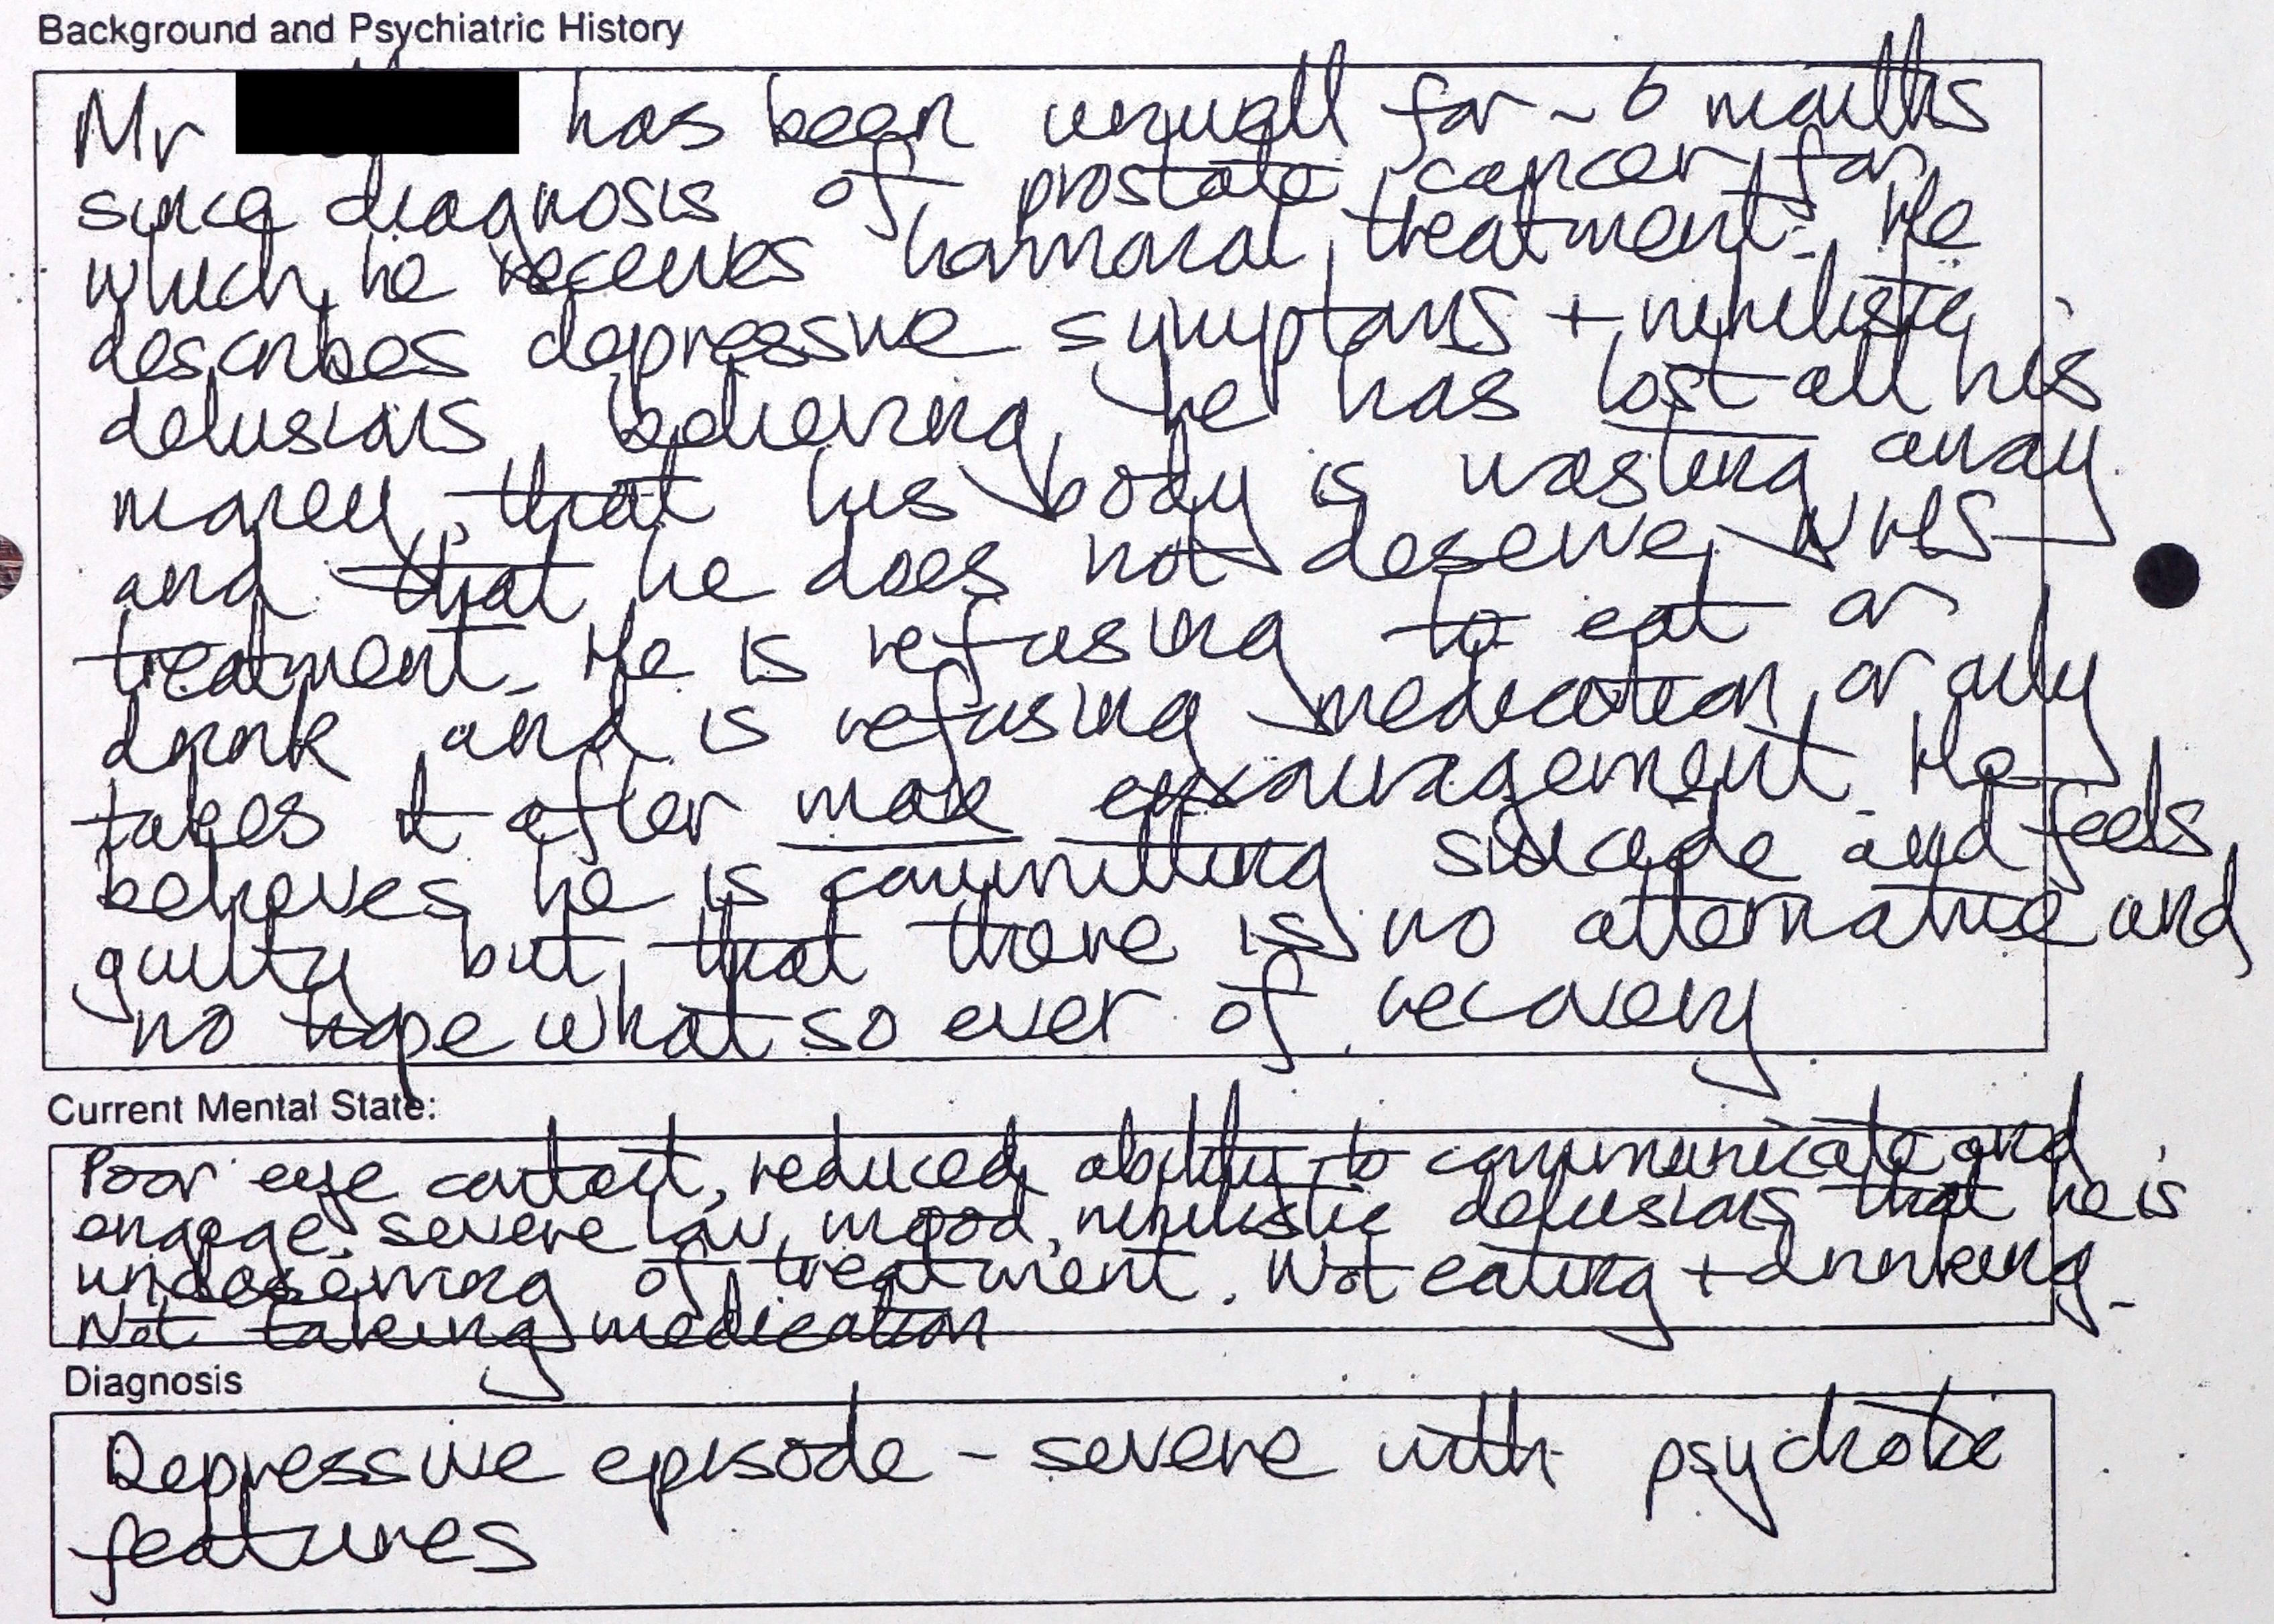 Background and Psychiatric History
Mr has been unwell for ~ 6 months
since diagnosis of prostate cancer for
which he receives hormonal treatment. He
describes depressive symptoms + nihilistic
delusions believing he has lost all his
money, that his body is wasting away
and that he does not deserve NHS
treatment. He is refusing to eat or
drink and is refusing medication, or only
takes it after max encouragement. He
believes he is committing suicide and feels
guilty but that there is no alternative and
no hope what so ever of recovery
Current Mental State:
Poor eye contact, reduced ability to communicate and
engage, severe low mood, nihilistic delusions that he is
undeserving of treatment. Not eating + drinking.
Not taking medication
Diagnosis
Depressive episode - severe with psychotic
features